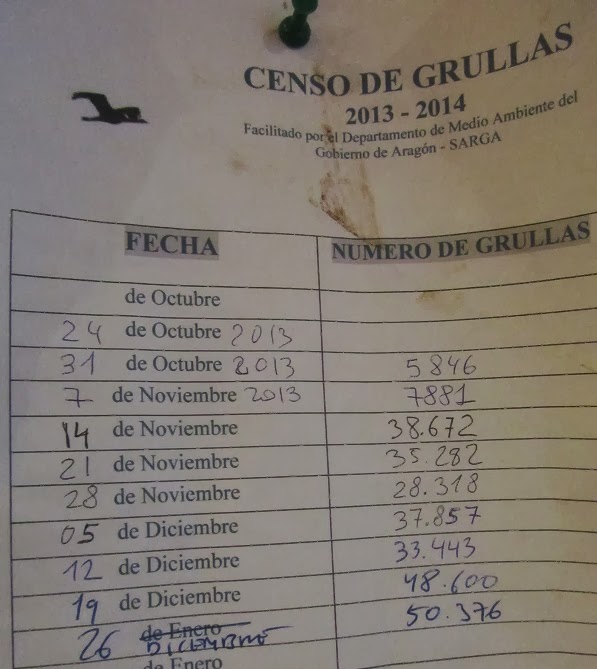 CENSO DE GRULLAS
2013 - 2014
Facilitado por el Departamento de Medio Ambiente del
Gobierno de Aragón - SARGA
FECHA NUMERO DE GRULLAS
de Octubre
24 de Octubre 2013
31 de Octubre 2013 5846
7 de Noviembre 2013 7881
14 de Noviembre 38.672
21 de Noviembre 35.282
28 de Noviembre 28.318
05 de Diciembre 37.857
12 de Diciembre 33.443
19 de Diciembre 48.600
26 de Enero DICIEMBRE 50.376
de Enero